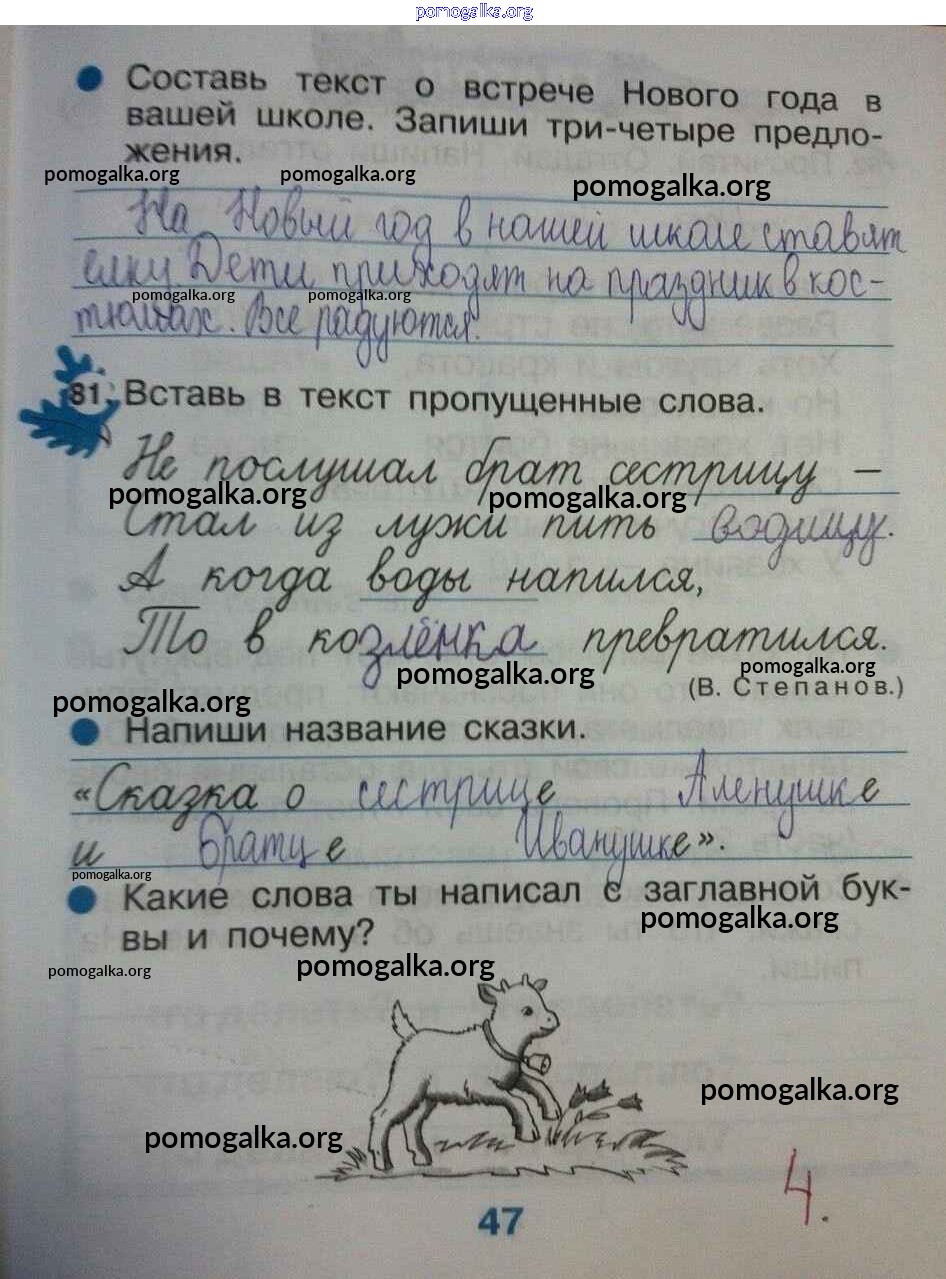 pomogalka.org
Составь текст о встрече Нового года в
вашей школе. Запиши три-четыре предло-
жения.
pomogalka.org pomogalka.org pomogalka.org
На Новый год в нашей школе ставят
елку Дети приходят на праздник в кос-
pomogalka.org pomogalka.org
тюмах. Все радуются.
81. Вставь в текст пропущенные слова.
Не послушал брат сестрицу –
pomogalka.org pomogalka.org
Стал из лужи пить водицу.
А когда воды напился,
То в козлёнка превратился.
pomogalka.org pomogalka.org
(В. Степанов.)
pomogalka.org
Напиши название сказки.
«Сказка о сестрице Аленушке
и братце Иванушке».
pomogalka.org
Какие слова ты написал с заглавной бук-
вы и почему?
pomogalka.org
pomogalka.org pomogalka.org
pomogalka.org
pomogalka.org
4.
47